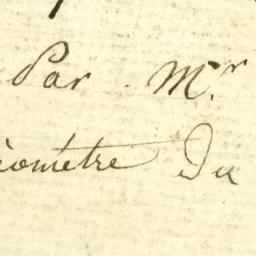 Par Mr.
éométre Du